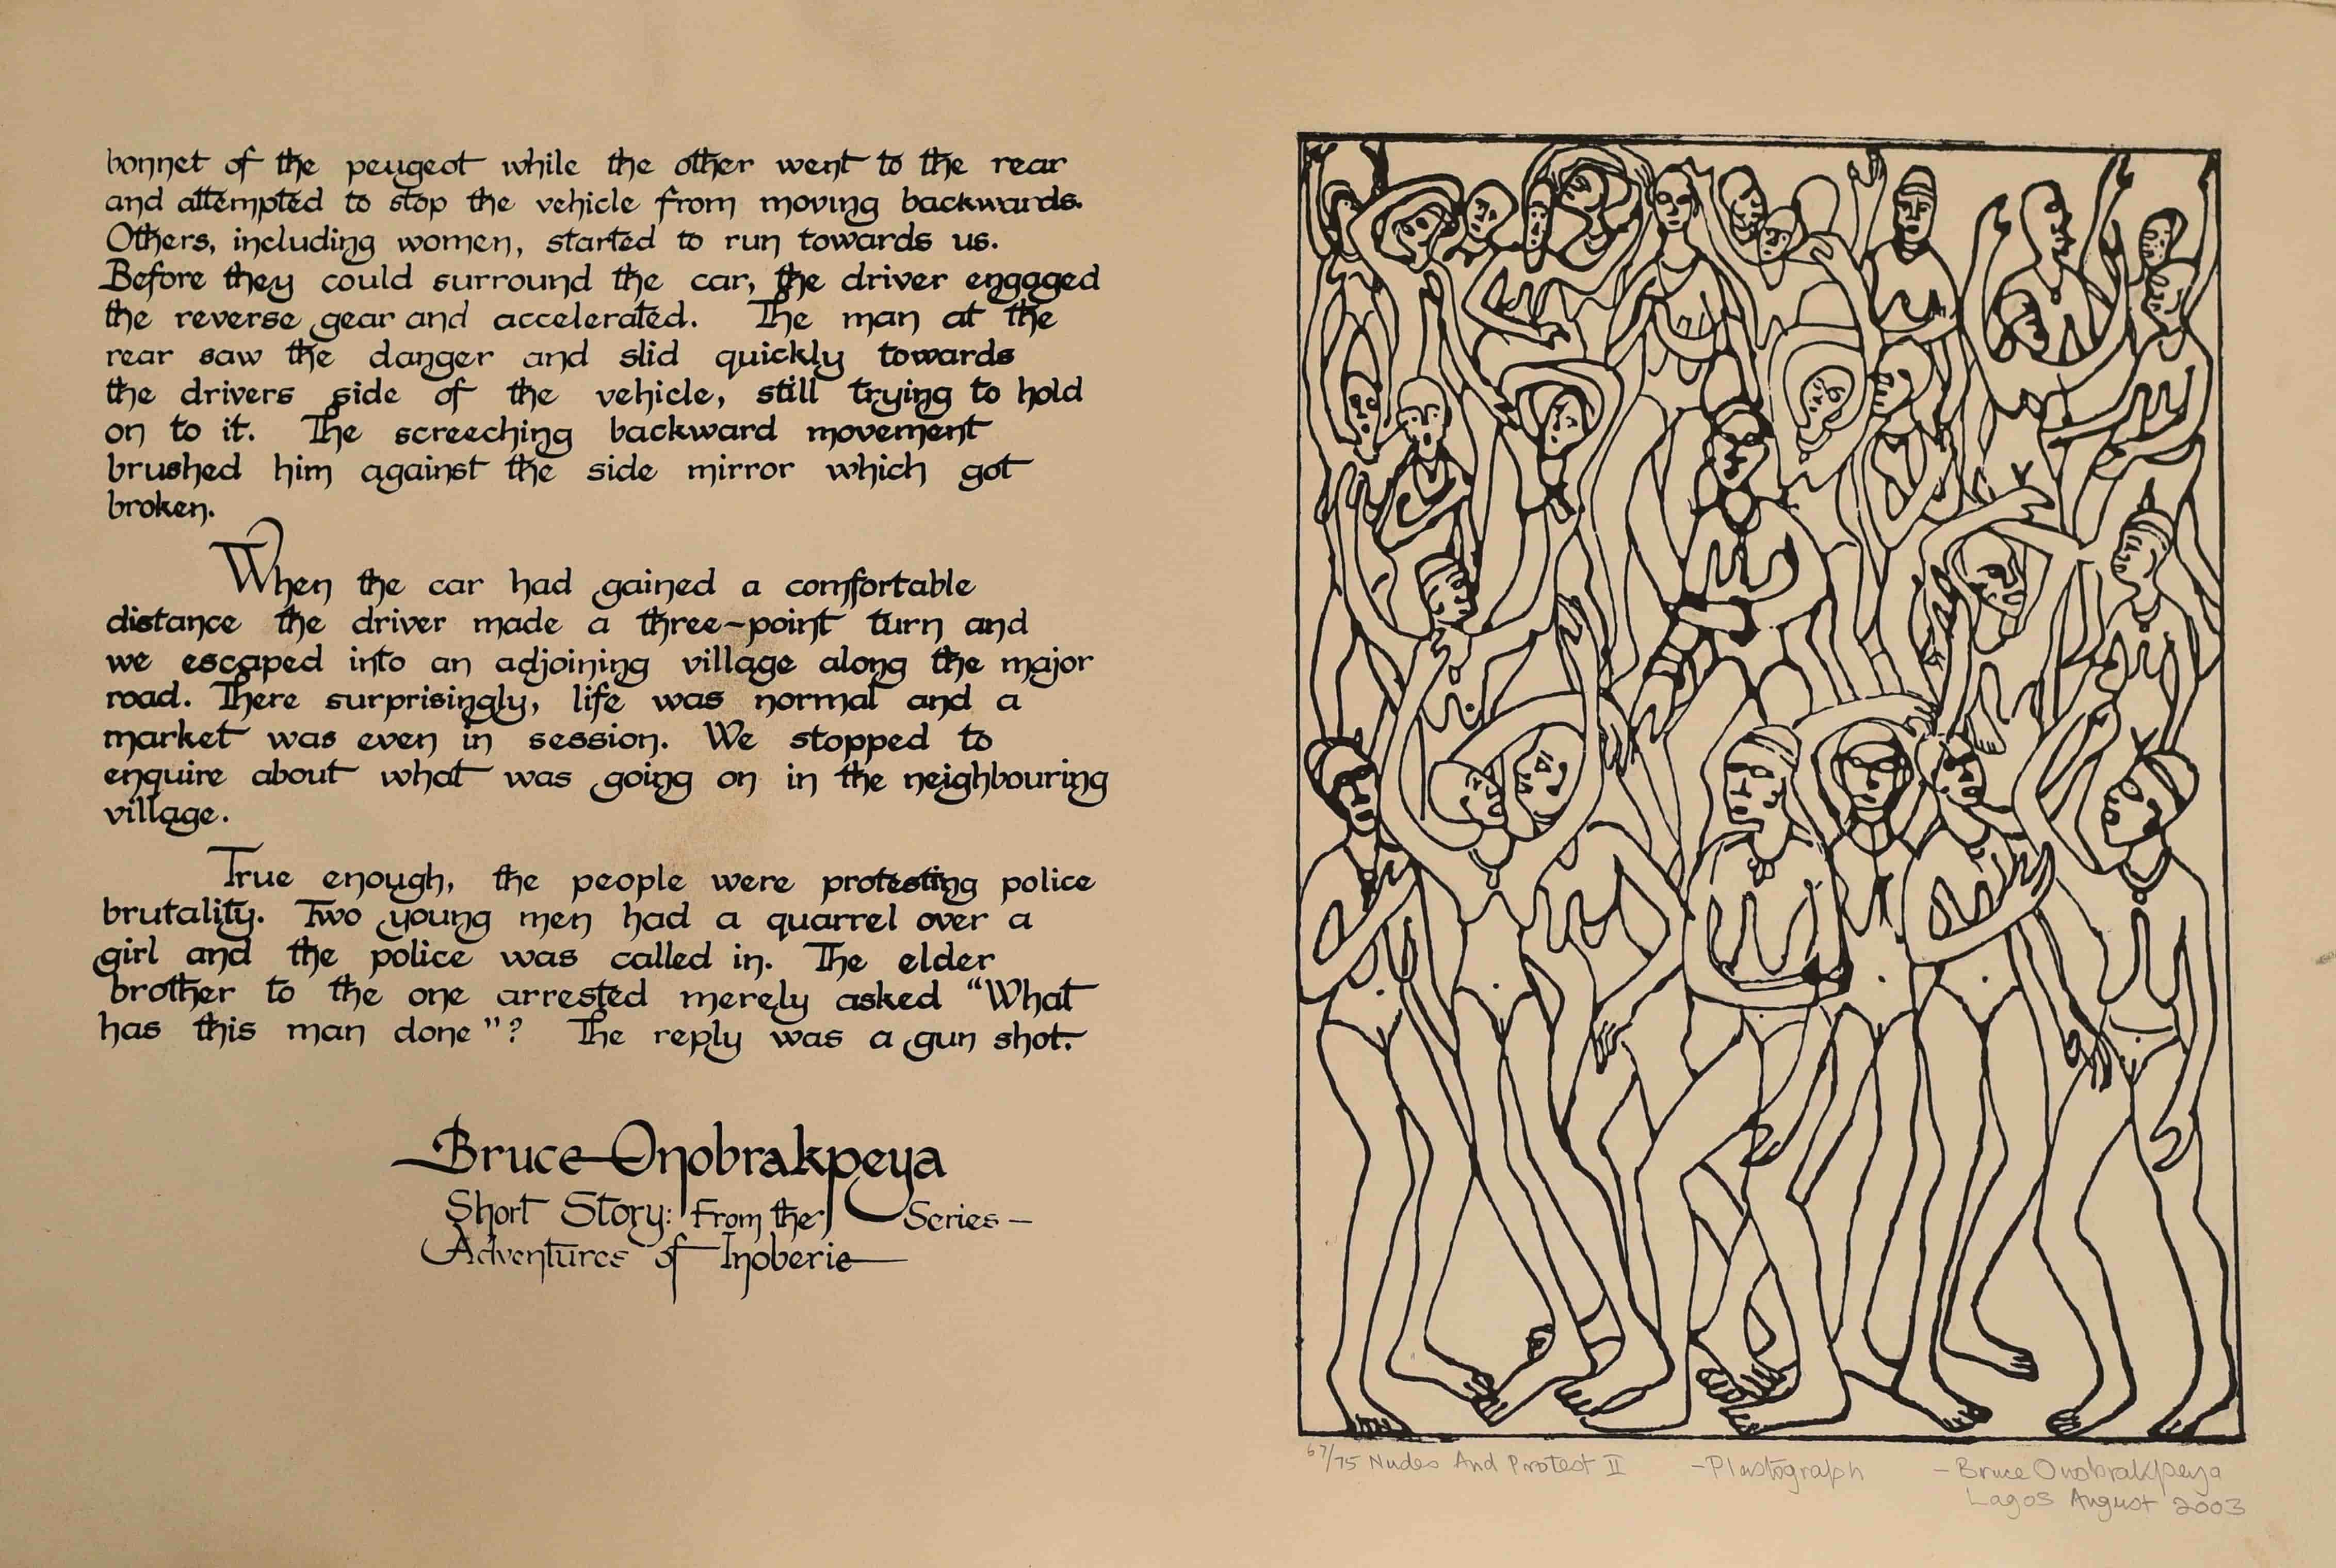 bonnet of the peugeot while the other went to the rear
and attempted to stop the vehicle from moving backwards.
Others, including women, started to run towards us.
Before they could surround the car, the driver engaged
the reverse gear and accelerated. The man at the
rear saw the danger and slid quickly towards
the drivers side of the vehicle, still trying to hold
on to it. The screeching backward movement
brushed him against the side mirror which got
broken.
When the car had gained a comfortable
distance the driver made a three-point turn and
we escaped into an adjoining village along the major
road. There surprisingly, life was normal and a
market was even in session. We stopped to
enquire about what was going on in the neighbouring
village.
True enough, the people were protesting police
brutality. Two young men had a quarrel over a
girl and the police was called in. The elder
brother to the one arrested merely asked "What
has this man done"? The reply was a gun shot.
Bruce Onobrakpeya
Short Story: From the Series -
Adventures of Inoberie
67/75 Nudes And Protest II - Plastograph - Bruce Onobrakpeya
Lagos August 2003